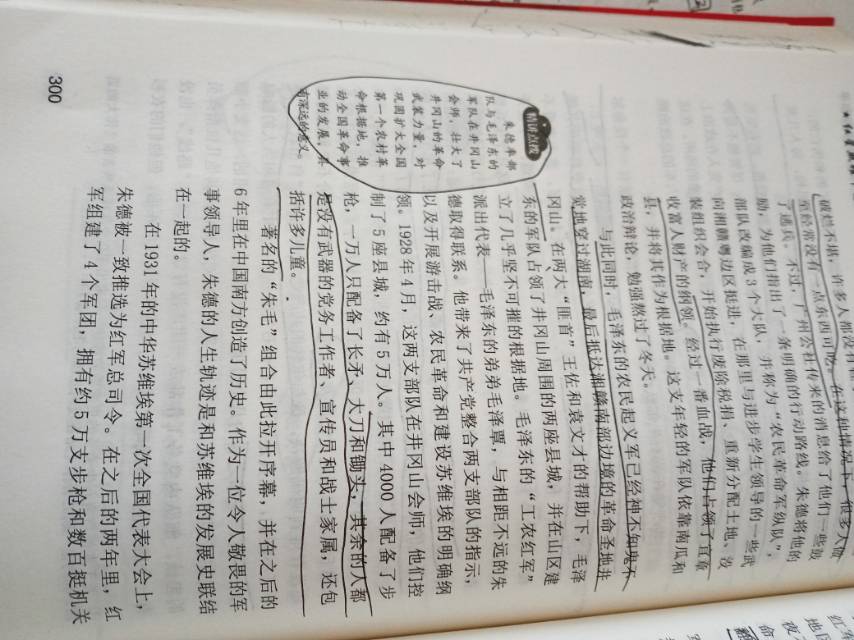 破烂不堪，许多人都没有
至经常没有一点东西可吃。在这种情况下，很多人做
了逃兵。不过，广州公社传来的消息给了他们一些鼓
励，为他们指出了一条明确的行动路线。朱德将他的
部队改编成3个大队，并称为“农民革命军纵队”，
向湘赣粤边区挺进，在那里与进步学生领导的一些武
装组织会合，开始执行废除税捐、重新分配土地、没
收富人财产的纲领。经过一番血战，他们占领了宜章
县，并将其作为根据地。这支年轻的军队依靠南瓜和
政治辩论，勉强熬过了冬天。
与此同时，毛泽东的农民起义军已经神不知鬼不
觉地穿过湖南，最后抵达湘赣南部边境的革命圣地井
冈山。在两大“匪首”王佐和袁文才的帮助下，毛泽
东的军队占领了井冈山周围的两座县城，并在山区建
立了几乎坚不可摧的根据地。毛泽东的“工农红军”
派出代表——毛泽东的弟弟毛泽覃，与相距不远的朱
德取得联系。他带来了共产党整合两支部队的指示，
以及开展游击战、农民革命和建设苏维埃的明确纲
领。1928年4月，这两支部队在井冈山会师，他们控
制了5座县城，约有5万人。其中4000人配备了步
枪，一万人只配备了长矛、大刀和锄头，其余的人都
是没有武器的党务工作者、宣传员和战士家属，还包
括许多儿童。
著名的“朱毛”组合由此拉开序幕，并在之后的
6年里在中国南方创造了历史。作为一位令人敬畏的军
事领导人，朱德的人生轨迹是和苏维埃的发展史联结
在一起的。
在1931年的中华苏维埃第一次全国代表大会上，
朱德被一致推选为红军总司令。在之后的两年里，红
军组建了4个军团，拥有约5万支步枪和数百挺机关
精讲点拨
朱德率部
队与毛泽东的
军队在井冈山
会师，壮大了
井冈山的革命
武装力量，对
巩固扩大全国
第一个农村革
命根据地，推
动全国革命事
业的发展，具
有深远的意义。
300